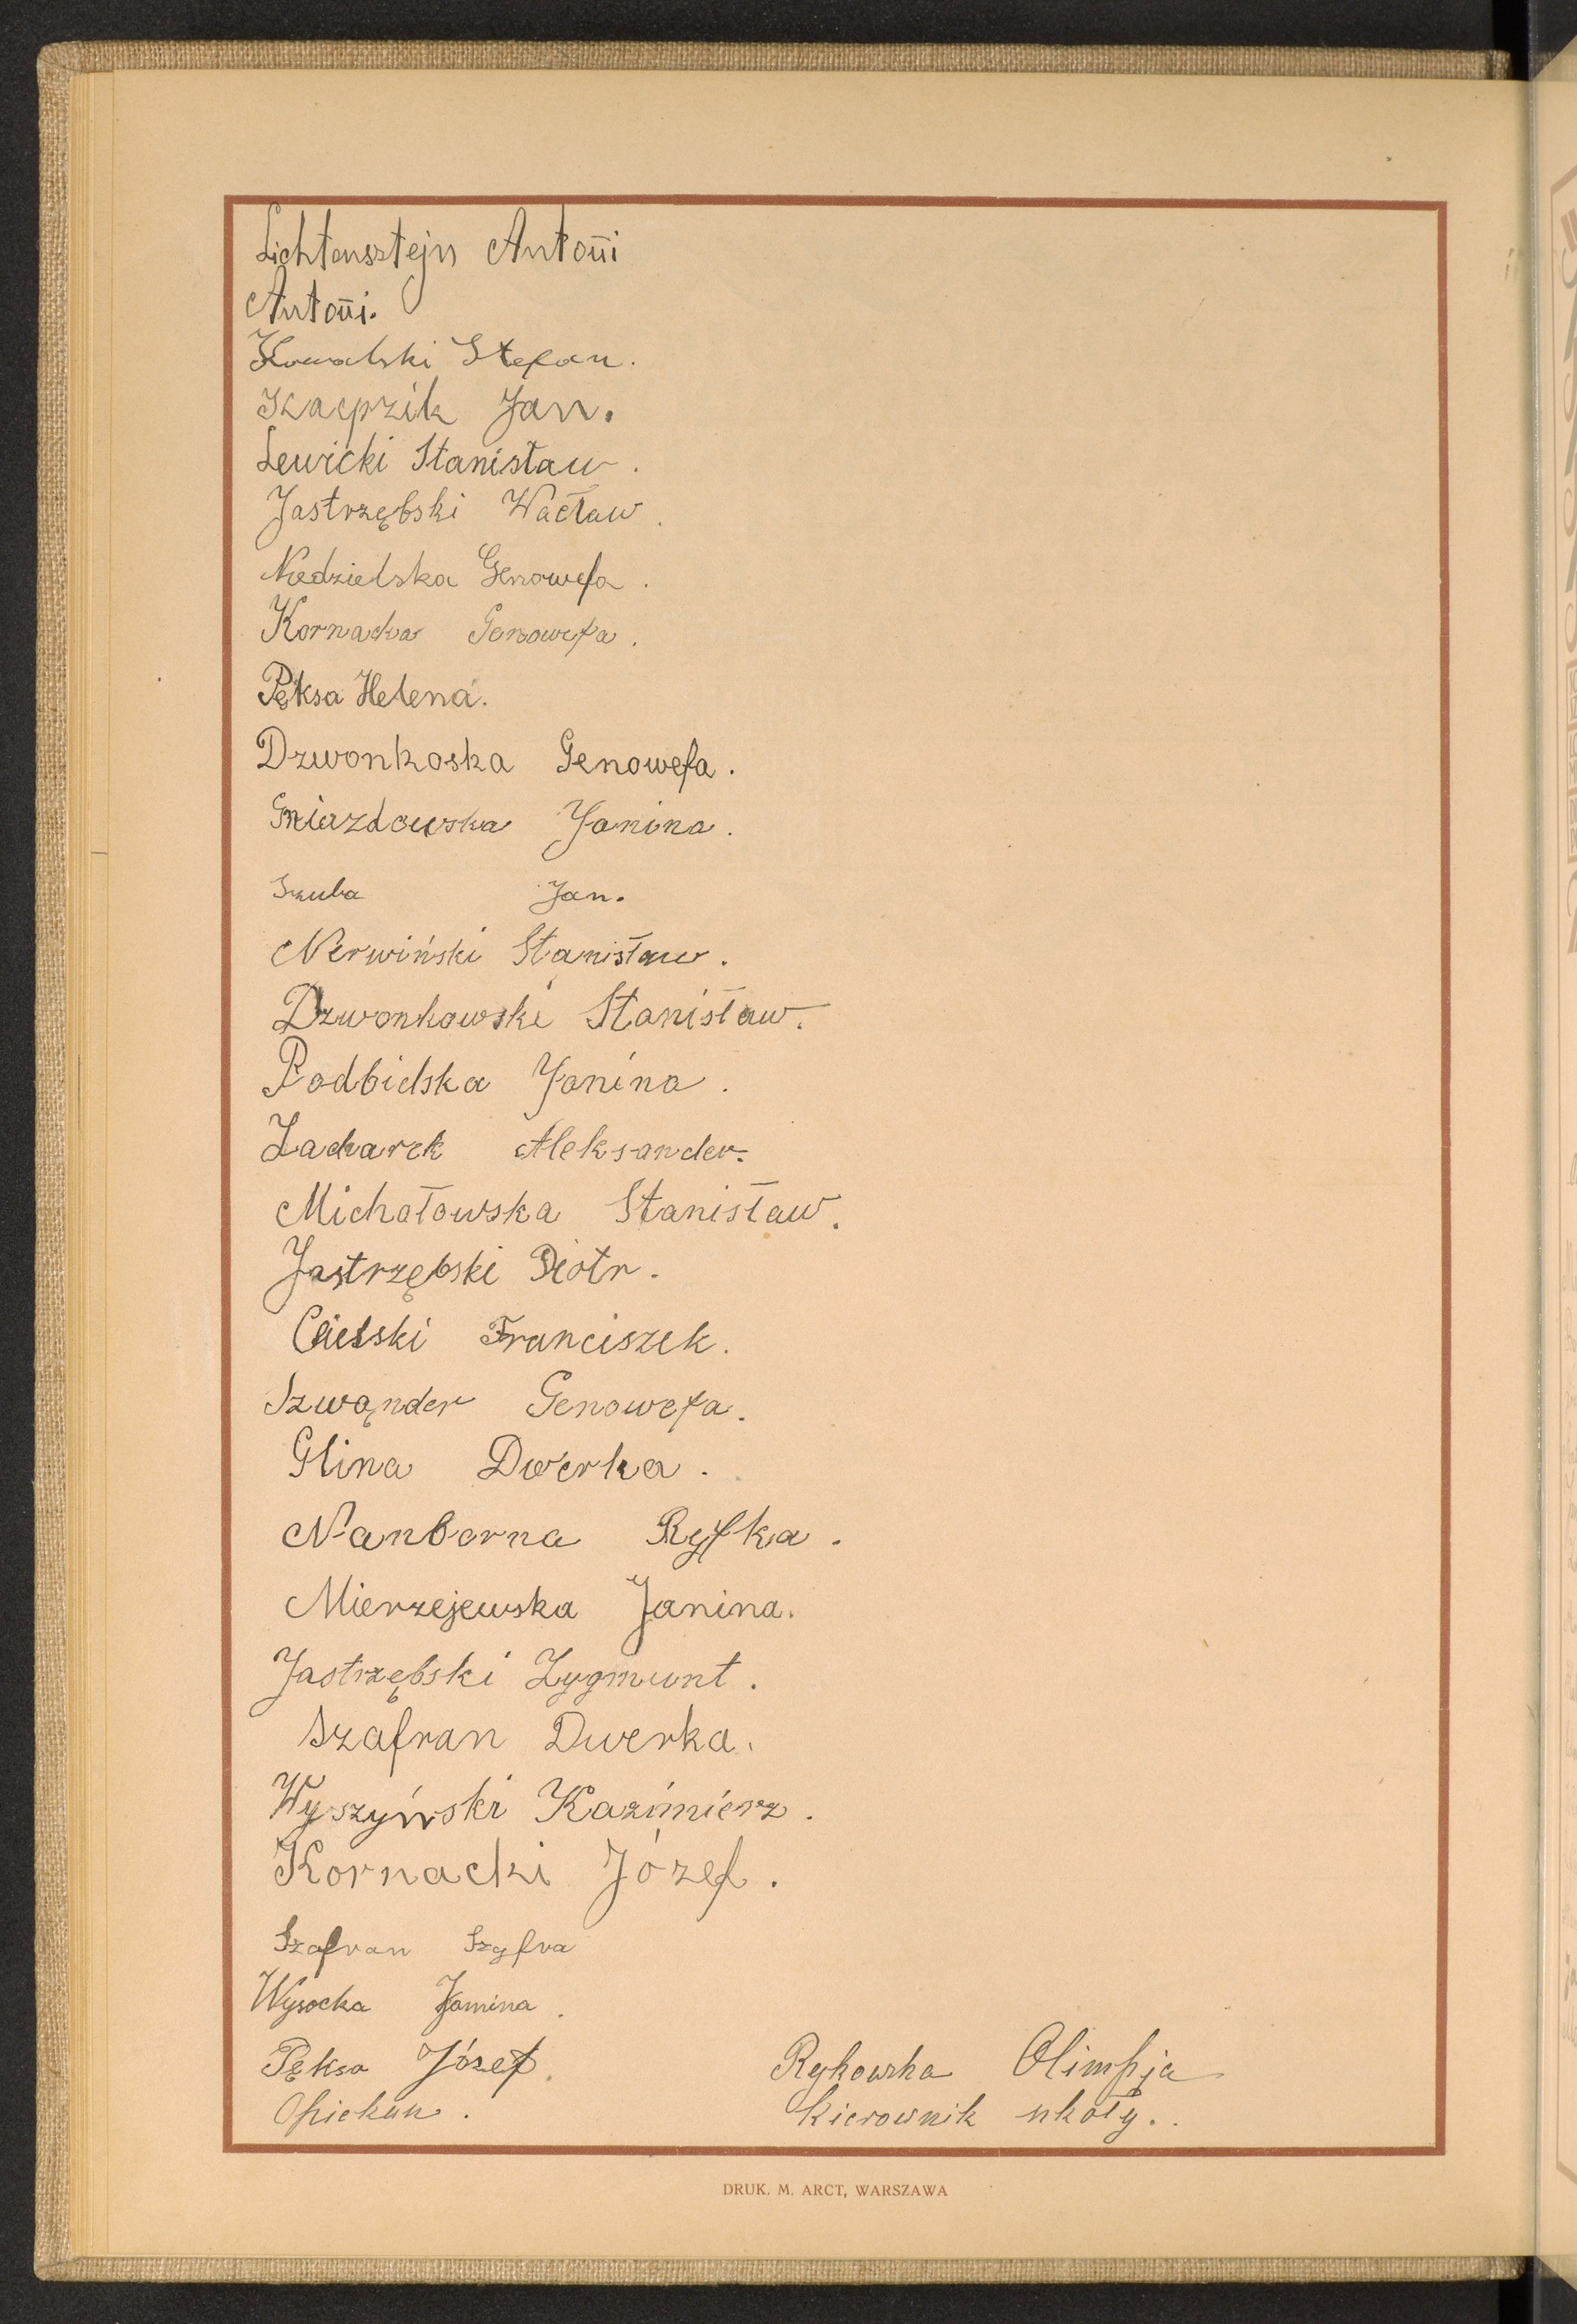 Lichtensztejn Antoni
Antoni.
Kowalski Stefan.
Kacprzik Jan.
Lewicki Stanisław.
Jastrzębski Wacław.
Niedzielska Genowefa.
Kornacka Genowefa.
Pęksa Helena.
Dzwonkoska Genowefa.
Gniazdowska Janina.
Szuba Jan.
Nerwiński Stanisław.
Dzwonkowski Stanisław.
Podbielska Janina.
Zacharek Aleksander.
Michałowska Stanisław.
Jastrzębski Piotr.
Cielski Franciszek.
Szwąnder Genowefa.
Glina Dwerka.
Nanborna Ryfka.
Mierzejewska Janina.
Jastrzębski Zygmunt.
Szafran Dwerka.
Wyszyński Kazimierz.
Kornacki Józef.
Szafran Szyfra
Wysocka Janina.
Pęksa Józef. Rykowska Olimpja
Opiekun. Kierownik szkoły.
DRUK. M. ARCT, WARSZAWA